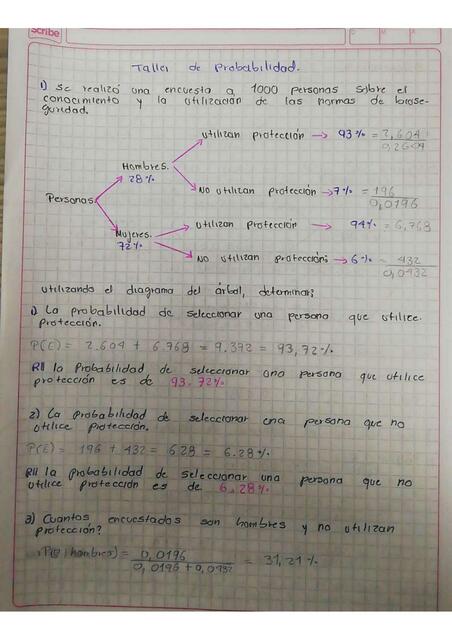 Scribe
D M A
Taller de Probabilidad.
1) Se realizó una encuesta a 1000 personas sobre el
conocimiento y la utilización de las normas de biose-
guridad.
utilizan protección → 93% = 2,604
0,2604
Hombres.
28%
No utilizan protección → 7% = 196
0,0196
Personas
utilizan protección → 94% = 6,768
Mujeres.
72%
No utilizan protección; → 6% 432
0,0432
utilizando el diagrama del árbol, determinar;
1) La probabilidad de seleccionar una persona que utilice
protección.
P(E) = 2.604 + 6.768 = 9.392 = 93,72%
R// la Probabilidad de seleccionar una persona que utilice
protección es de 93.72%
2) La probabilidad de seleccionar una persona que no
utilice protección.
P(E) = 196 + 432 = 628 = 6.28%
R// la Probabilidad de seleccionar una persona que no
utilice protección es de 6,28%
3) Cuantos encuestados son hombres y no utilizan
protección?
hombres) = 0,0196 = 31,21%
0,0196 + 0,0432